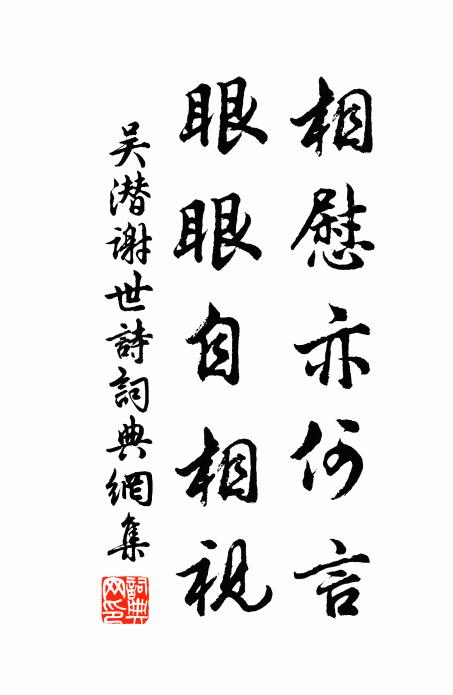 相慰亦何言
眼眼自相視
吴潜謝世詩詞典網集
詞典網印